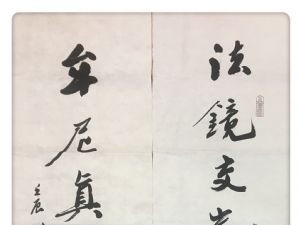 法鏡交光
牟尼真
壬辰